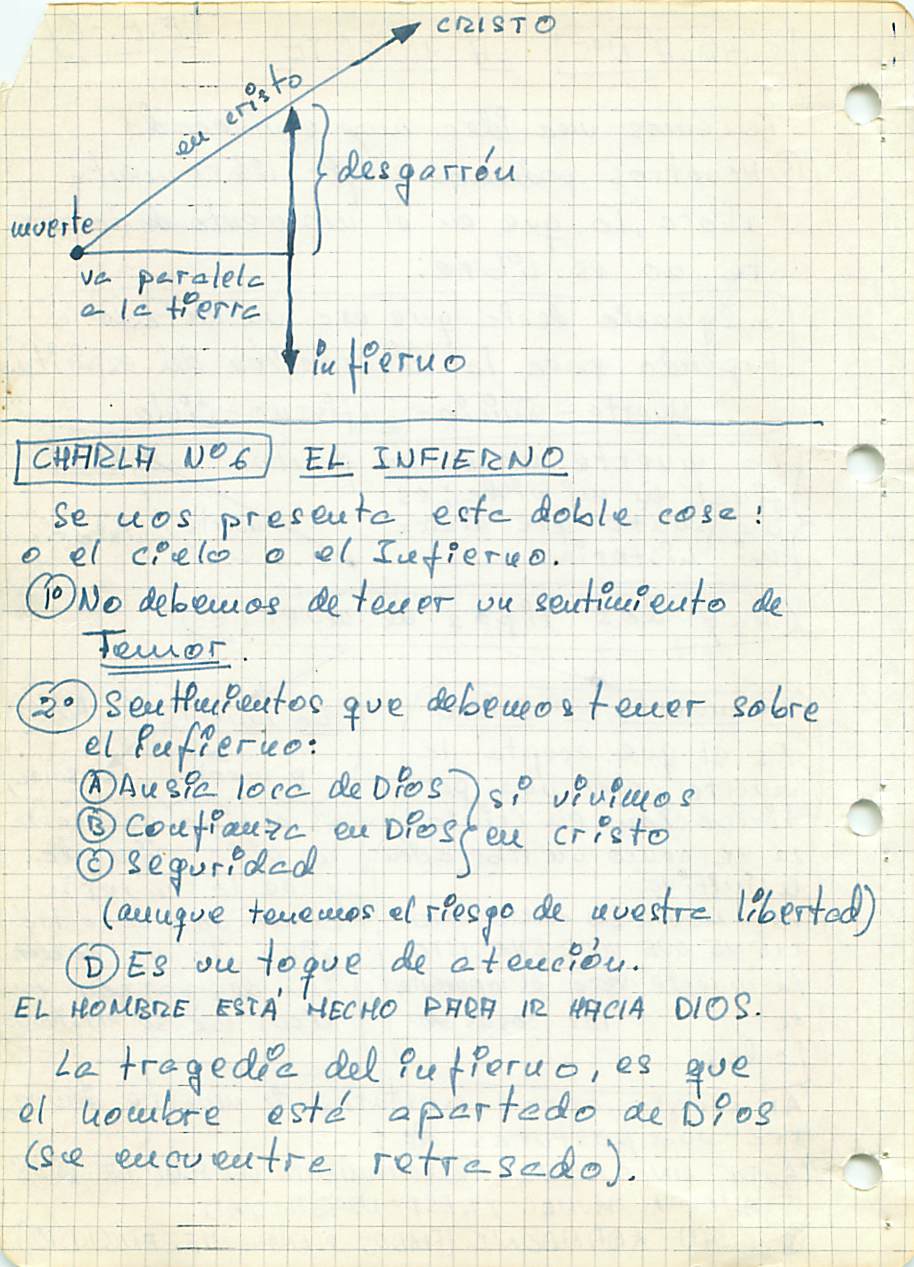 CRISTO
en cristo
desgarrón
muerte
va paralela
a la tierra
infierno
CHARLA Nº 6 EL INFIERNO
Se nos presenta esta doble cosa:
o el cielo o el Infierno.
1º No debemos de tener un sentimiento de
Temor.
2º Sentimientos que debemos tener sobre
el infierno:
A Ansia loca de Dios
B Confianza en Dios
C Seguridad
si vivimos
en cristo
(aunque tenemos el riesgo de nuestra libertad)
D Es un toque de atención.
EL HOMBRE ESTÁ HECHO PARA IR HACIA DIOS.
La tragedia del infierno, es que
el hombre está apartado de Dios
(se encuentra retrasado).